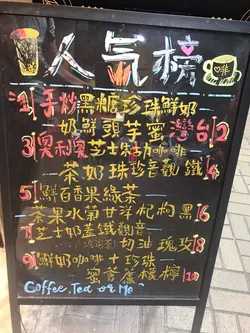 人氣榜
1 手炒黑糖珍珠鮮奶
奶鮮頭芋蜜灣台 2
3 奧利奧芝士咖啡
茶奶珠珍音觀鐵 4
5 鮮百香果綠茶
茶果水菊甘洋杞枸黑 6
7 芝士奶蓋鐵觀音
切油瑰玫 8
9 鮮奶咖啡+珍珠
蜜薈蘆檬檸 10
Coffee, Tea or Me